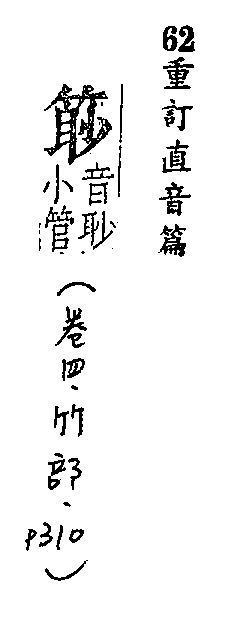 62重訂直音篇
音
小管
(卷四、竹部、p310)